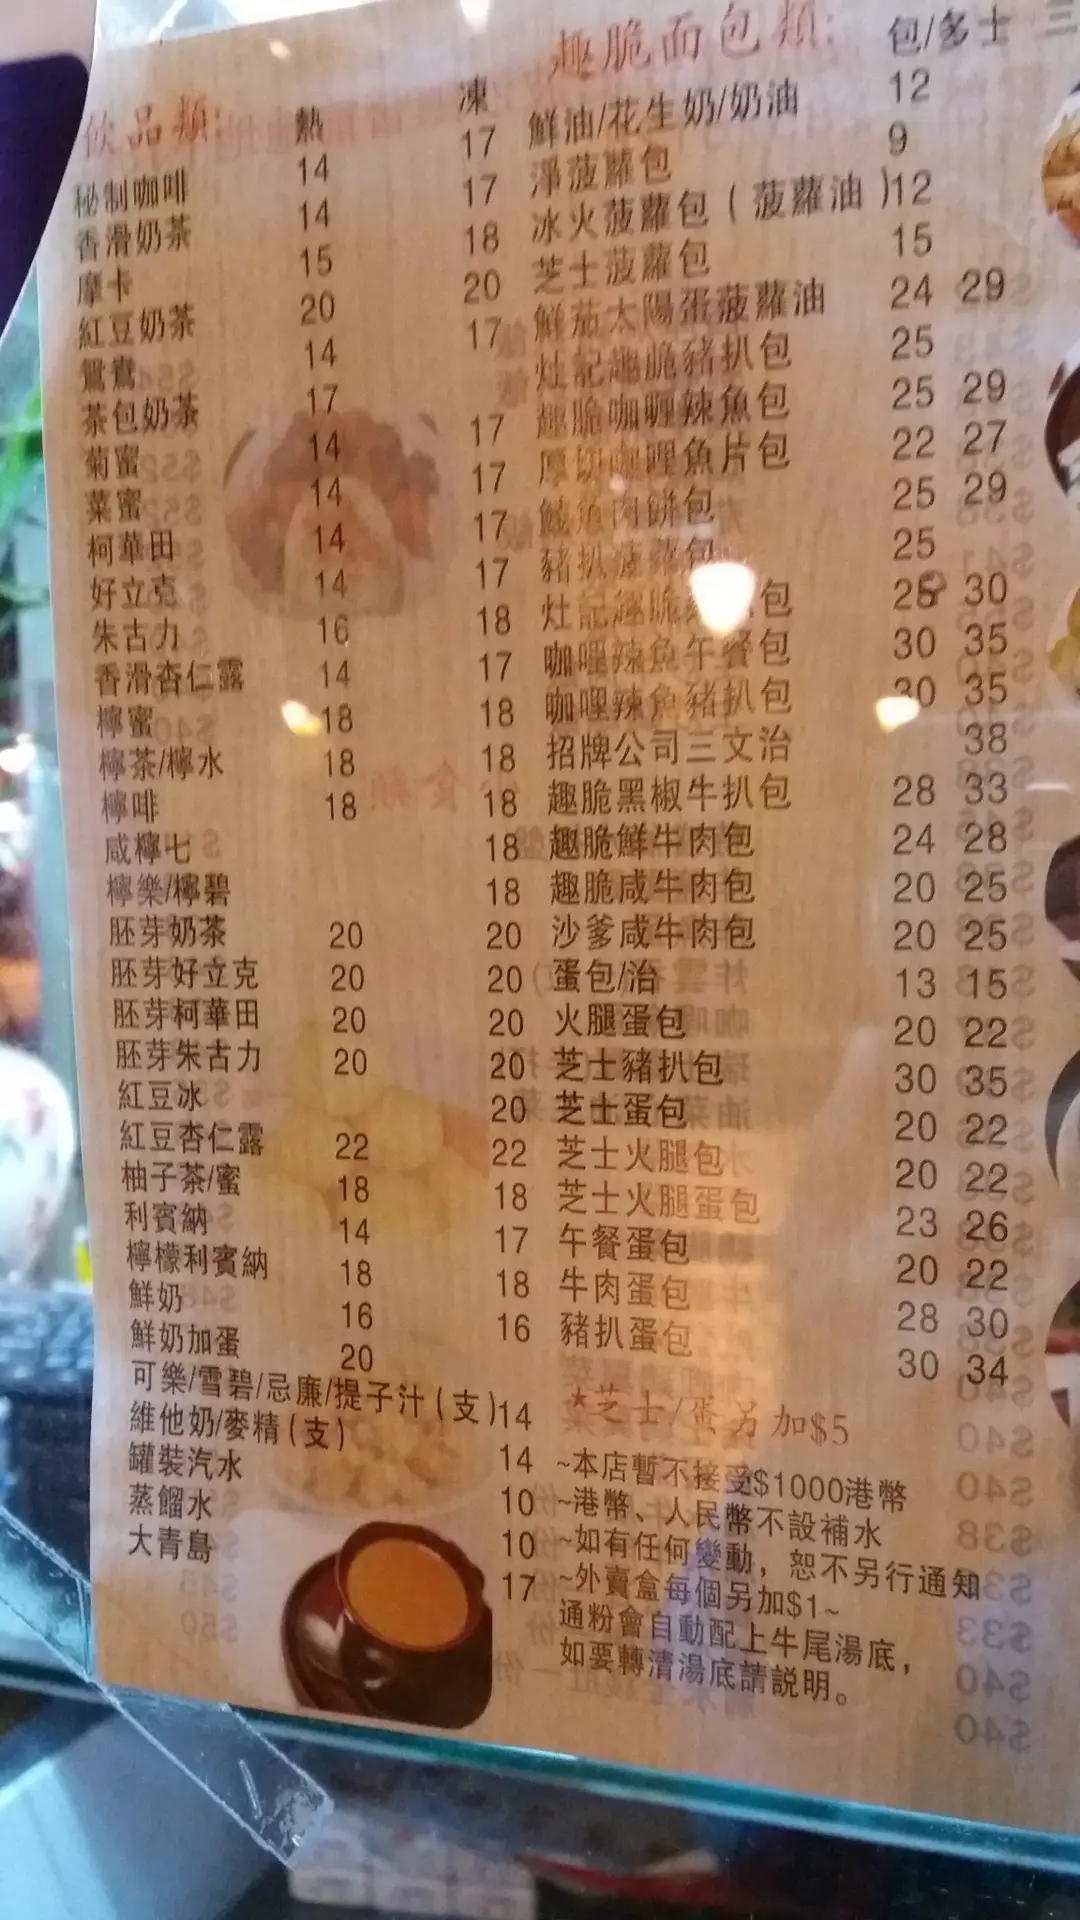 飲品類: 熱 凍
秘制咖啡 14 17
香滑奶茶 14 17
摩卡 15 18
紅豆奶茶 20 20
鴛鴦 14 17
茶包奶茶 17
菊蜜 14 17
菜蜜 14 17
柯華田 14 17
好立克 14 17
朱古力 16 18
香滑杏仁露 14 17
檸蜜 18 18
檸茶/檸水 18 18
檸啡 18 18
咸檸七 18
檸樂/檸碧 18
胚芽奶茶 20 20
胚芽好立克 20 20
胚芽柯華田 20 20
胚芽朱古力 20 20
紅豆冰 20
紅豆杏仁露 22 22
柚子茶/蜜 18 18
利賓納 14 17
檸檬利賓納 18 18
鮮奶 16 16
鮮奶加蛋 20
可樂/雪碧/忌廉/提子汁(支) 14
維他奶/麥精(支) 14
罐裝汽水 10
蒸餾水 10
大青島 17
趣脆面包類: 包/多士 三
鮮油/花生奶/奶油 12
淨菠蘿包 9
冰火菠蘿包(菠蘿油) 12
芝士菠蘿包 15
鮮茄太陽蛋菠蘿油 24 29
灶記趣脆豬扒包 25
趣脆咖喱辣魚包 25 29
厚切咖喱魚片包 22 27
鯪魚肉餅包 25 29
豬扒菠蘿包 25
灶記趣脆 包 30
咖哩辣魚午餐包 30 35
咖哩辣魚豬扒包 30 35
招牌公司三文治 38
趣脆黑椒牛扒包 28 33
趣脆鮮牛肉包 24 28
趣脆咸牛肉包 20 25
沙爹咸牛肉包 20 25
蛋包/治 13 15
火腿蛋包 20 22
芝士豬扒包 30 35
芝士蛋包 20 22
芝士火腿包 20 22
芝士火腿蛋包 23 26
午餐蛋包 20 22
牛肉蛋包 28 30
豬扒蛋包 30 34
*芝士/蛋另加$5
~本店暫不接受$1000港幣
~港幣、人民幣不設補水
~如有任何變動，恕不另行通知
~外賣盒每個另加$1~
通粉會自動配上牛尾湯底，
如要轉清湯底請説明。